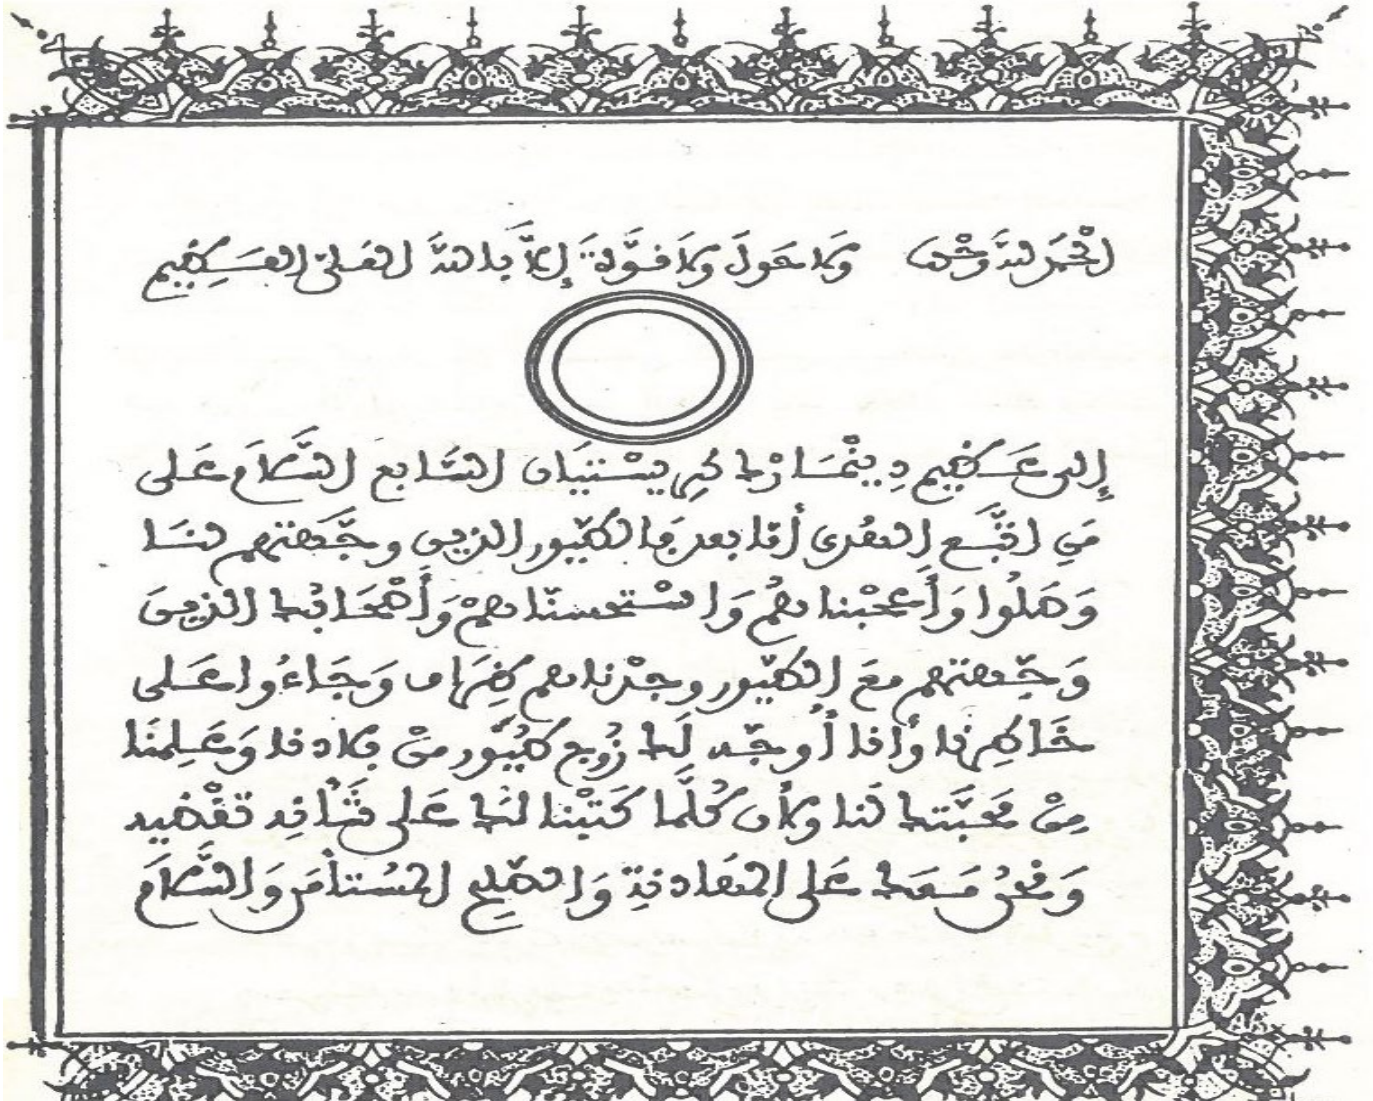 الحمد لله وحده ولا حول ولا قوة إلا بالله العلي العظيم
إلى عظيم دينمارك كريستيان السابع السلام على
من اتبع الهدى أما بعد فالكثيور الذين وجهتهم لنا
وصلوا وأعجبونا واستحسناهم وأصحابك الذين
وجهتهم مع الطيور وجدناهم وجاءوا على
خاطرنا وأنا أوجه لك زوج طيور من بلادنا وعلمنا
من محبتك لنا ولأن كلما كتبنا لك على تقضيه
ونحن معك على المهادنة والصلح المستأمر والسلام